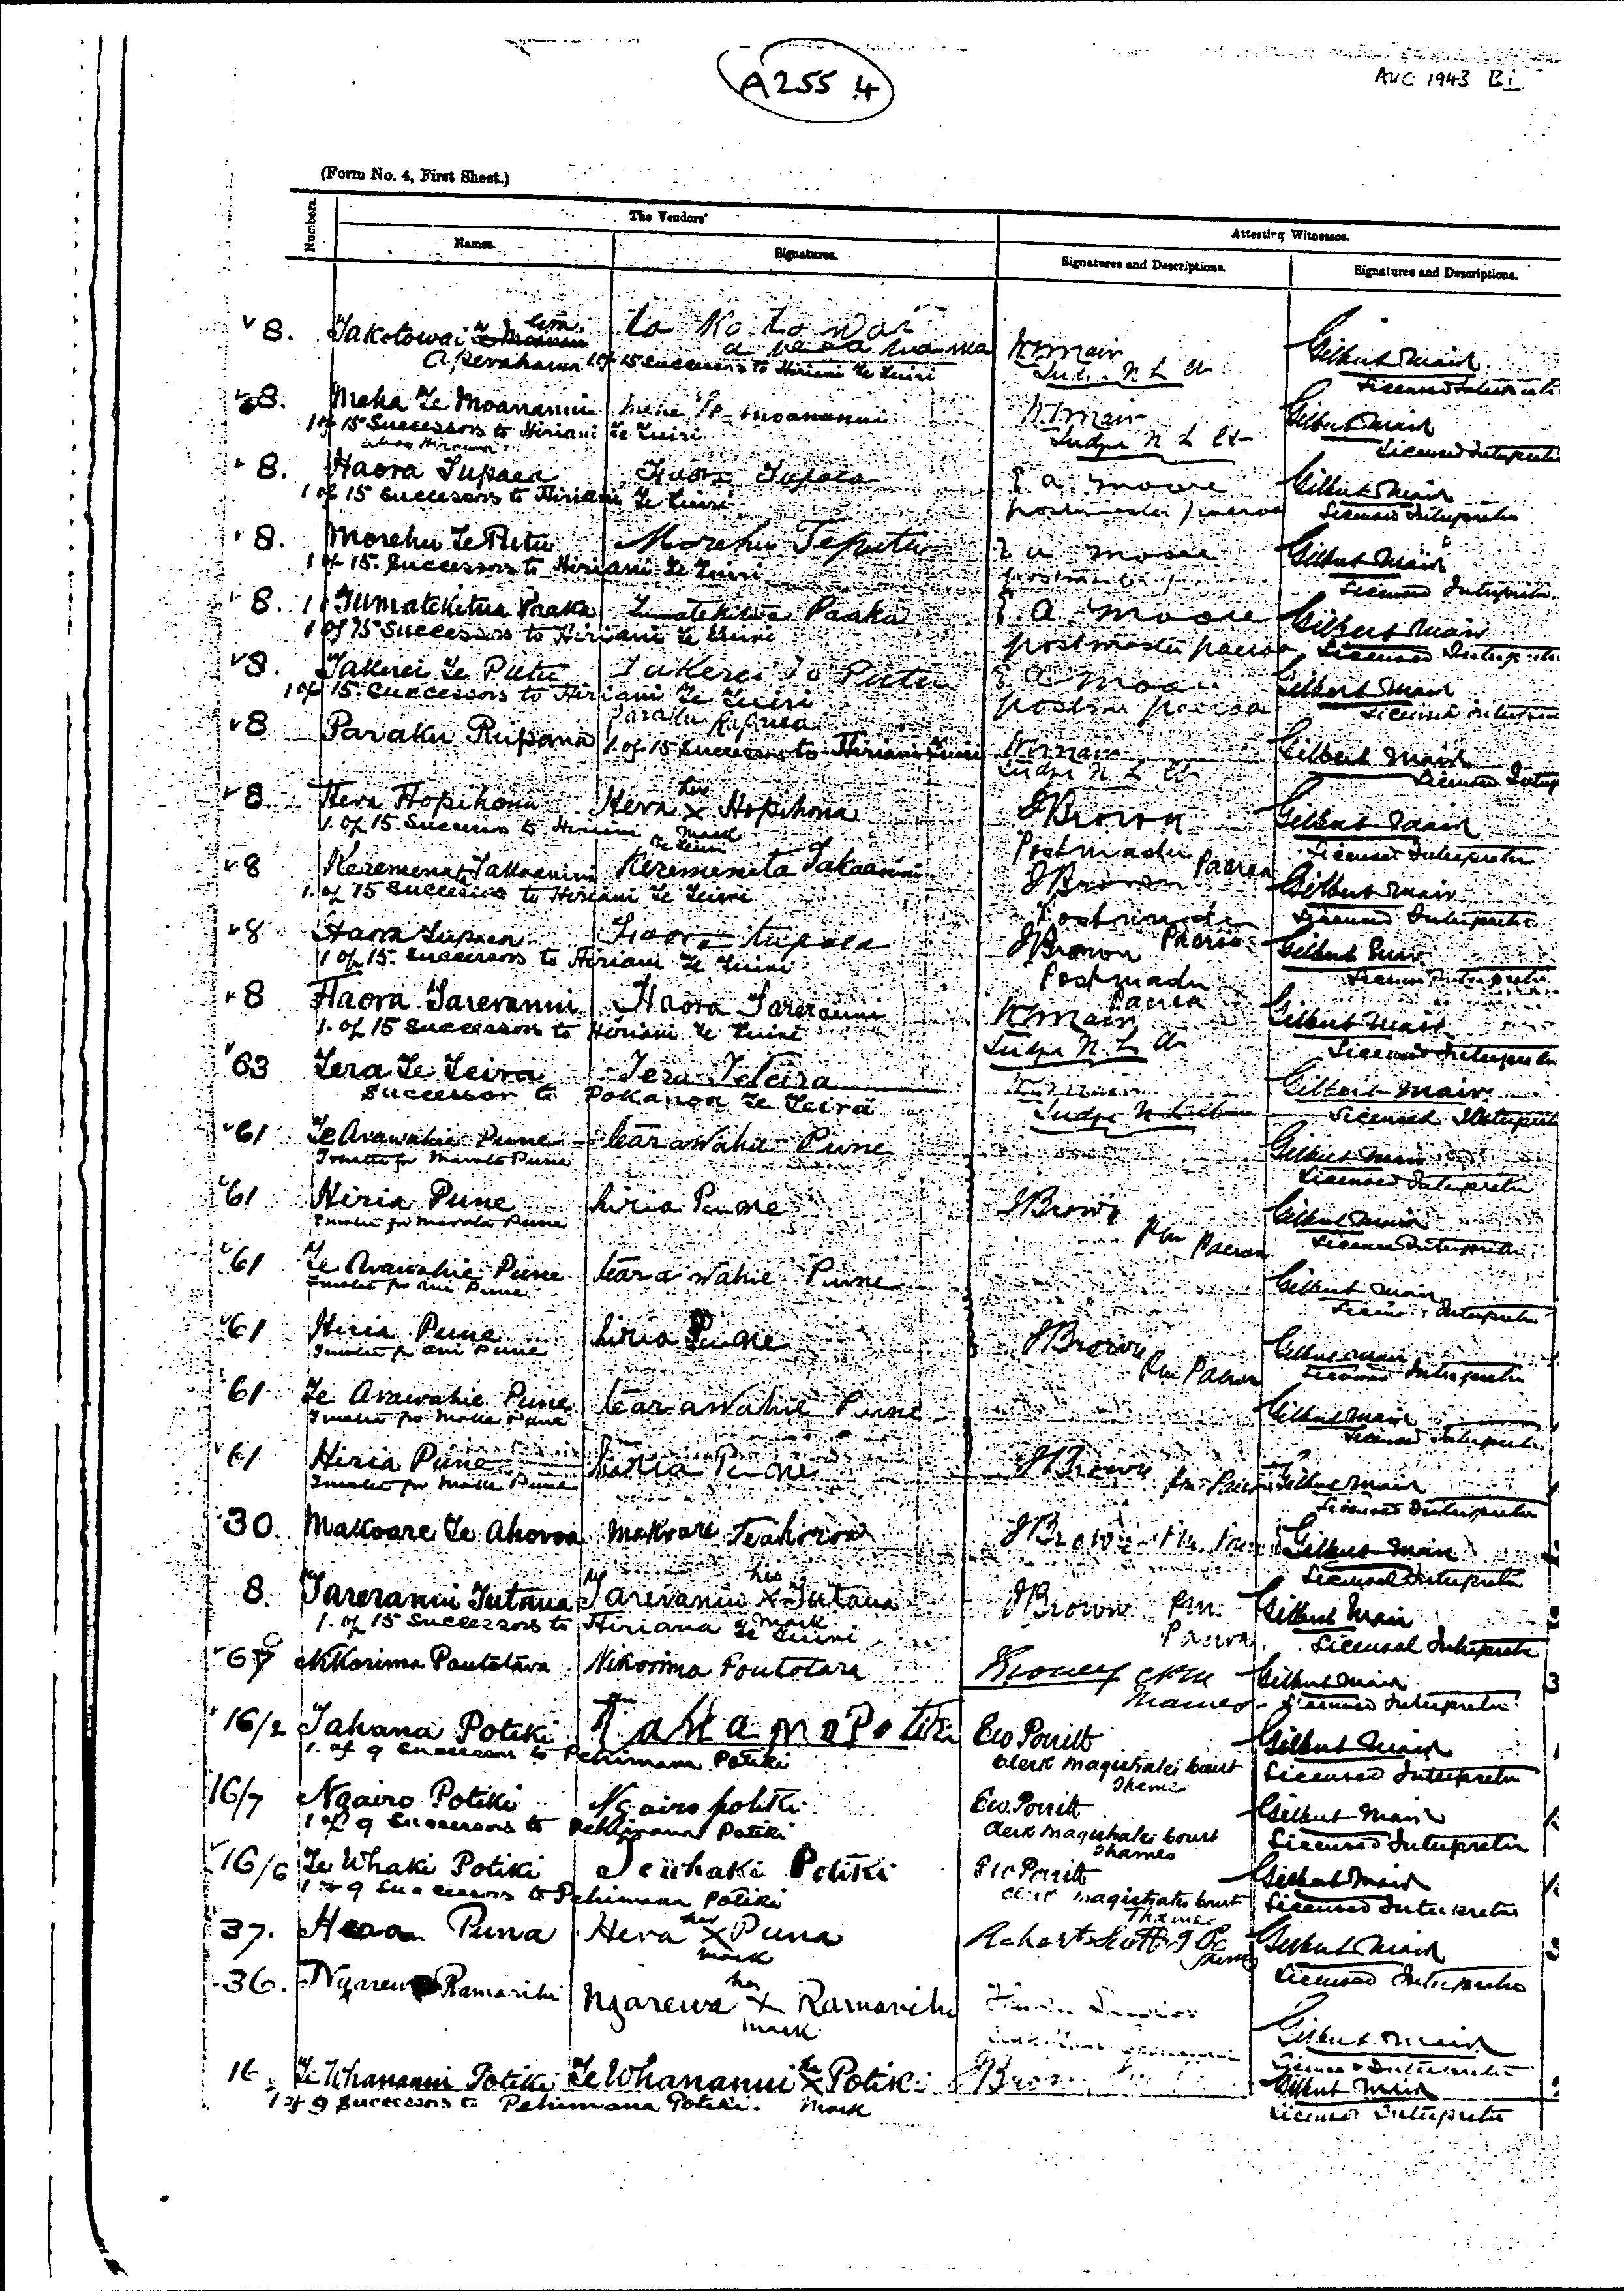 A255 .4
AUC 1943 Bi
(Form No. 4, First Sheet.)
Numbers.
The Vendors'
Attesting Witnesses.
Names.
Signatures.
Signatures and Descriptions.
Signatures and Descriptions.
8. Takotowai
Aperahama 1 of 15 successors to Hiriani Te Tuiri
Judge N L Ct
Gilbert Mair
Licensed Interpreter
8. Meha Te Moananui Meha Te Moananui
1 of 15 Successors to Hiriani Te Tuiri
Judge N L Ct
Gilbert Mair
Licensed Interpreter
8. Haora Tupaea Haora Tupaea
1 of 15 Successors to Hiriani Te Tuiri
E a moore
postmaster paeroa
Gilbert Mair
Licensed Interpreter
8. Morehu Te Putu Morehu Teputu
1 of 15 Successors to Hiriani Te Tuiri
E a moore
Gilbert Mair
Licensed Interpreter
8. Tumatekitua Paaka Tumatekitua Paaka
1 of 15 Successors to Hiriani Te Tuiri
E a moore
postmaster paeroa
Gilbert Mair
Licensed Interpreter
8. Takerei Te Putu Takerei Te Putu
1 of 15 Successors to Hiriani Te Tuiri
Gilbert Mair
8 Paraku Rapana Paraku Rapana
1 of 15 Successors to Hiriani Te Tuiri
Judge N L Ct
Gilbert Mair
Licensed Interp
8 Hera Hopihona Hera her X mark Hopihona
1 of 15 Successors to Hiriani Te Tuiri
J Brown
Postmaster Paeroa
Gilbert Mair
Licensed Interpreter
8 Keremeneta Takaanini Keremeneta Takaanini
1 of 15 Successors to Hiriani Te Tuiri
J Brown
Postmaster Paeroa
Gilbert Mair
Licensed Interpreter
8 Haora Tupaea Haora tupaea
1 of 15 Successors to Hiriani Te Tuiri
J Brown
Postmaster Paeroa
Gilbert Mair
Licensed Interpreter
8 Haora Tareranui Haora Tareranui
1 of 15 Successors to Hiriani Te Tuiri
Judge N. L Ct
Gilbert Mair
Licensed Interpreter
63 Tera Te Teira Tera Teteira
Successor to Pokanoa Te Teira
Gilbert Mair
Licensed Interpret
61 Te Arawahie Pune tearawahie Pune
Trustee for Pune
Gilbert Mair
Licensed Interpreter
61 Hiria Pune hiria Pune
Trustee for Pune
J Brown
Pm Paeroa
Gilbert Mair
Licensed Interpreter
61 Te Arawahie Pune tearawahie Pune
Trustee for Ani Pune
Gilbert Mair
Interpreter
61 Hiria Pune hiria Pune
Trustee for Ani Pune
J Brown
Pm Paeroa
Gilbert Mair
Licensed Interpreter
61 Te Arawahie Pune tearawahie Pune
Trustee for Pune
Gilbert Mair
Licensed Interpreter
61 Hiria Pune hiria Pune
Trustee for Pune
J Brown
Pm Paeroa
Gilbert Mair
Licensed Interpreter
30. Makoare Te Ahoroa Makoare Teahoroa
J Brown Pm
Gilbert Mair
Licensed Interpreter
8. Tareranui Tutaua Tareranui his X mark Tutaua
1 of 15 Successors to Hiriana Te Tuiri
J Brown Pm
Paeroa.
Gilbert Mair
Licensed Interpreter
Nikorima Poutotara Nikorima Poutotara
Gilbert Mair
Licensed Interpreter
16/2 Tahana Potiki TahanaPotiki
1 of 9 Successors to Pehimana Potiki
Geo Porritt
Clerk Magistrates Court
Thames
Gilbert Mair
Licensed Interpreter
16/7 Ngairo Potiki Ngairo potiki
1 of 9 Successors to Pehimana Potiki
Geo. Porritt
Clerk Magistrates Court
Thames
Gilbert Mair
Licensed Interpreter
16/6 Te Whaki Potiki Te whaki Potiki
1 of 9 Successors to Pehimana Potiki
Geo Porritt
Clerk Magistrates Court
Thames
Gilbert Mair
Licensed Interpreter
37. Hera Puna Hera her X mark Puna
Robert Scott
Gilbert Mair
Licensed Interpreter
36. Ngarewa Ramarihi Ngarewa her X mark Ramarihi
Gilbert Mair
Licensed Interpreter
16 Te Whananui Potiki Te Whananui X mark Potiki
1 of 9 Successors to Pehimana Potiki.
J Brown
Gilbert Mair
Licensed Interpreter